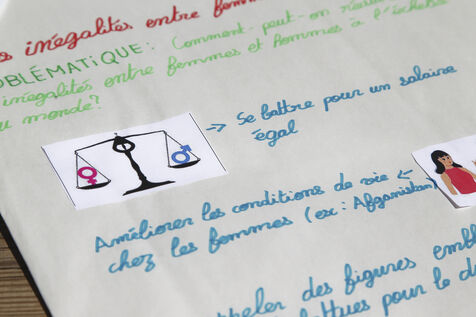 inégalités entre
PROBLÉMATIQUE: Comment peut-on
inégalités entre femmes et hommes à l'échelle
monde?
→ Se battre pour un salaire
égal
Améliorer les conditions de vie ←
chez les femmes (ex: Afganistan)
des figures
pour le